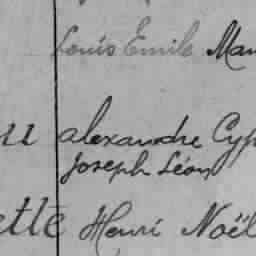 Louis Emile
alexandre
Joseph Léon
ette Henri Noël